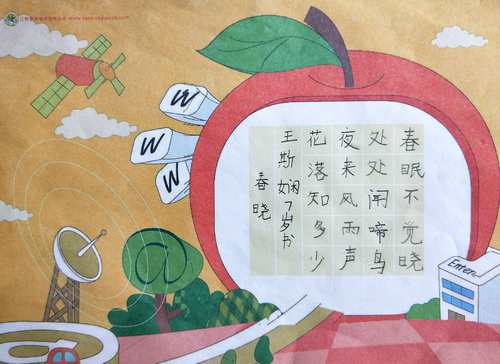 春眠不觉晓
处处闻啼鸟
夜来风雨声
花落知多少
王斯娴7岁书
春晓
W
W
W
Enter